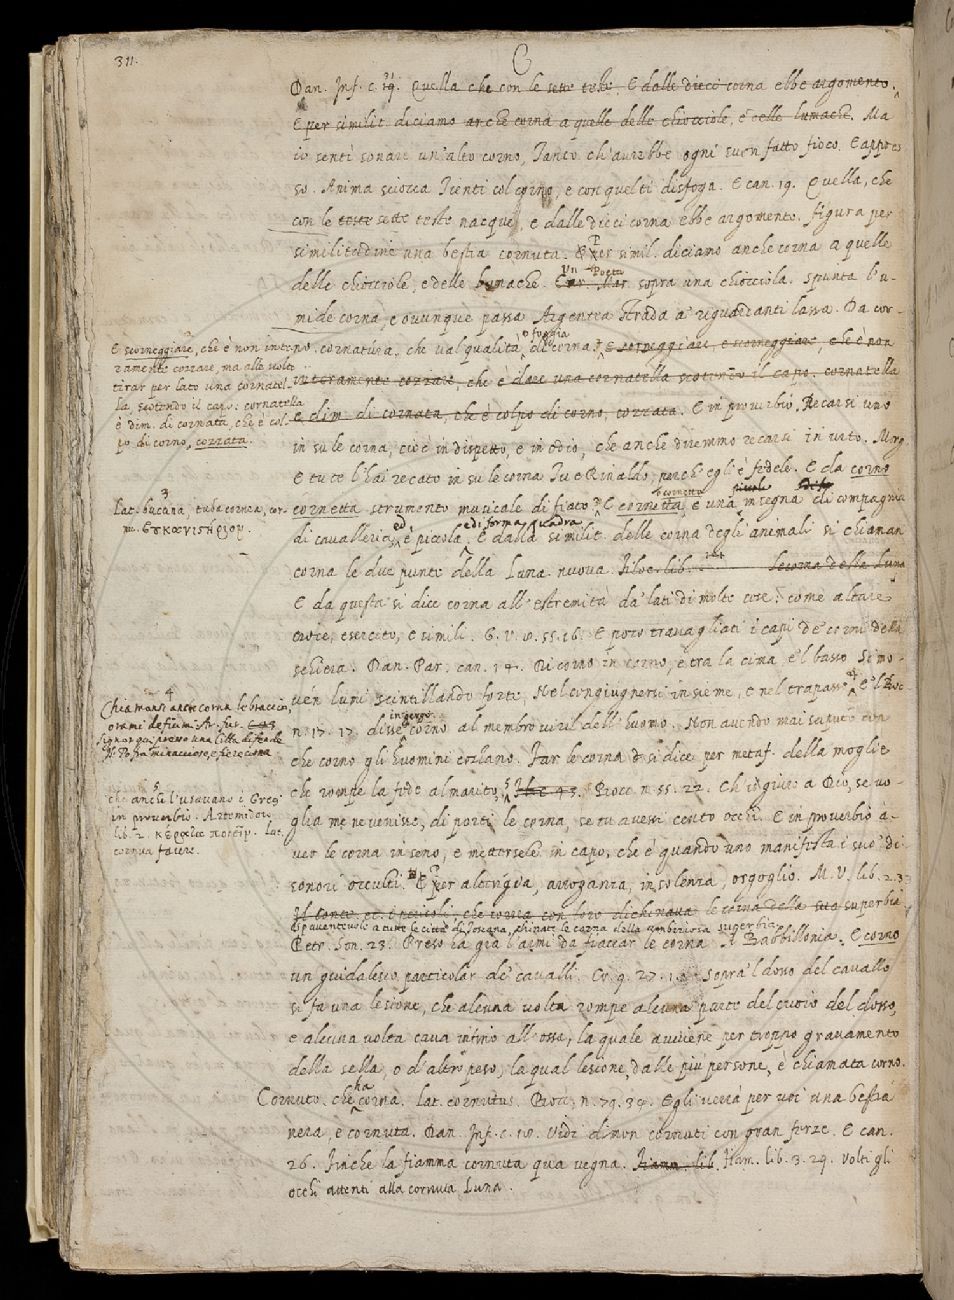 311.
C
Dan. Inf. c. 19. Quella che con le sette teste. E dalle dieci corna ebbe argomento.
E per similit. diciamo anche corna a quelle delle chiocciole, e delle lumache. Ma
io sentì sonare un'alto corno, Tanto ch'avrebbe ogni tuon fatto fioco. E appres
so. Anima sciocca Tienti col corno, e con quel ti disfoga. E can. 19. Quella, che
con le teste sette teste nacque, e dalle dieci corna ebbe argomento. figura per
similitudine una bestia cornuta. E Per simil. diciamo anche corna a quelle
delle chiocciole, e delle lumache. Un Poeta sopra una chiocciola. Spunta l'u-
mide corna, e ovunque passa Argentea strada a' riguardanti lassa. Da cor-
no. cornatura. che val qualità, o foggia di corna. E scorneggiare, e scorneggiare, che è non
interamente cozzare, che è dare una cornatella scotendo il capo. cornatella
è dim. di cornata, che è colpo di corno, cozzata. E in proverbio, Recarsi uno
in su le corna, cioè in dispetto, e in odio, che anche diremmo recarsi in urto. Morg.
E tu te l'hai recato in su le corna Tu e Rinaldo, perch'egli è fedele. E da corno
cornetta strumento musicale di fiato. 3 E cornetta, è una insegna di compagnia
di cavalleria, ed è piccola, e di forma quadra. E dalla similit. delle corna degli animali si chiaman
corna le due punte della Luna nuova. Filoc. lib. le corna della Luna
E da questa si dice corna all'estremità da' lati di molte cose: come altare
croce, esercito, e simili. G. V. 8. 55. 16. E poco travagliati i capi de' corni della
schiera. Dan. Par. can. 14. Di corno in corno, e tra la cima, e'l basso Si mo-
vén lumi scintillando forte, Nel congiugnersi insieme, e nel trapasso. 4 E'l Boc.
n. 17. 17. disse corno al membro viril dell'huomo. Non avendo mai saputo con
che corno gli huomini cozzano. Far le corna si dice per metaf. della moglie
che rompe la fede al marito. 5 Bocc. n. 55. 22. Ch'io giuro a Dio, se vo-
glia me ne venisse, di porti le corna, se tu avessi cento occhi. E in proverbio a-
ver le corna in seno, e mettersele in capo, che è quando uno manifesta i suo' di-
sonori occulti. E Per alterigia, arroganza, insolenza, orgoglio. M. V. lib. 2. 3.
Il conte, et i piccoli, che corna con loro dichinava le corna della sua superbia
Spaventevole a tutte le città di Toscana, chinate le corna della ambiziosa superbia
Petr. Son. 23. Preso ha già l'armi da fiaccar le corna A Babbillonia. E corno
un guidalesco particolar de' cavalli. Cr. 9. 27. 1. Sopra'l dosso del cavallo
si fa una lesione, che alcuna volta rompe alcuna parte del cuoio del dosso,
e alcuna volta cava infino all'ossa, la quale avviene per troppo gravamento
della sella, o d'altro peso, la qual lesione, dalle più persone, è chiamata corno.
Cornuto. che ha corna. lat. cornutus. Bocc. n. 79. 34. Egli verrà per voi una bestia
nera, e cornuta. Dan. Inf. c. 18. Vidi dimon cornuti con gran ferze. E can.
26. Finchè la fiamma cornuta qua vegna. Fiamm. lib. Fiam. lib. 3. 29. Volti gli
occhi attenti alla cornuta Luna.
E scorneggiare, che è non inte-
ramente cozzare, ma alle volte
tirar per lato una cornatel-
la, scotendo il capo. cornatella
è dim. di cornata, che è col-
po di corno, cozzata.
3
Lat. buccina, tuba cornea, cor-
nu.
4
Chiamansi anche corna le braccia,
o rami de' fiumi. Ar. Fur.
Signoreggi presso una Città, siede
'l Po fra minacciose, e fiere corna
5
che anche l'usavano i Greci
in proverbio. Artemidoro
lib. 2. κέρατα ποιεῖν. lat.
cornua facere.